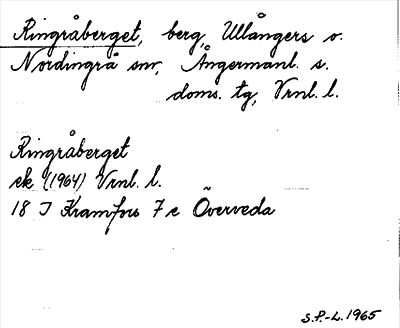 Ringråberget, berg, Ullångers o.
Nordingrå snr, Ångermanl. s.
doms. tg, Vrnl. l.
Ringråberget
ek (1964) Vrnl. l.
18 J Kramfors 7 c Överveda
S.P.-L. 1965